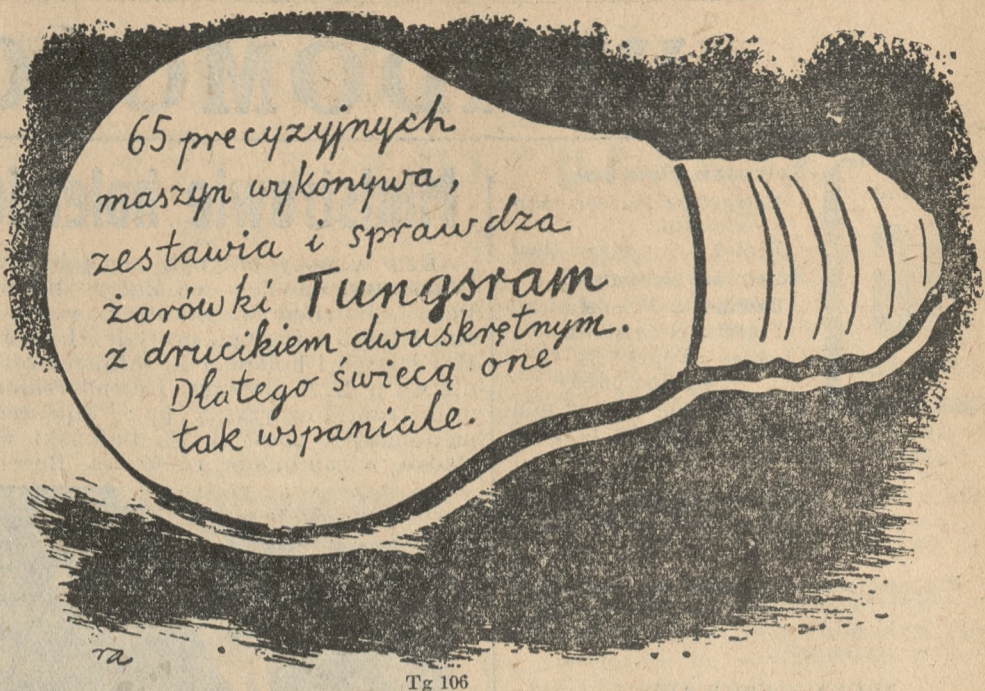 65 precyzyjnych
maszyn wykonywa,
zestawia i sprawdza
żarówki Tungsram
z drucikiem dwuskrętnym.
Dlatego świecą one
tak wspaniale.
ra
Tg 106